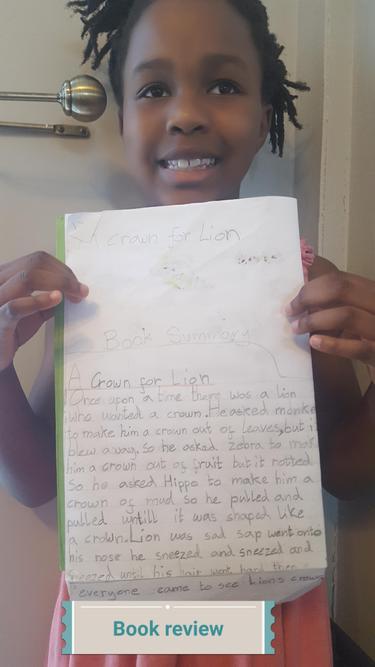 A crown for Lion
Book Summary
A Crown for Lion
Once upon a time there was a lion
who wanted a crown. He asked monke
to make him a crown out of leaves, but i
blew away. So he asked zebra to mak
him a crown out of fruit but it rotted
So he asked Hippo to make him a
crown of mud so he pulled and
pulled untill it was shaped like
a crown. Lion was sad sap went onto
his nose he sneezed and sneezed and
sneezed until his hair went hard then
everyone came to see Lions crown
Book review